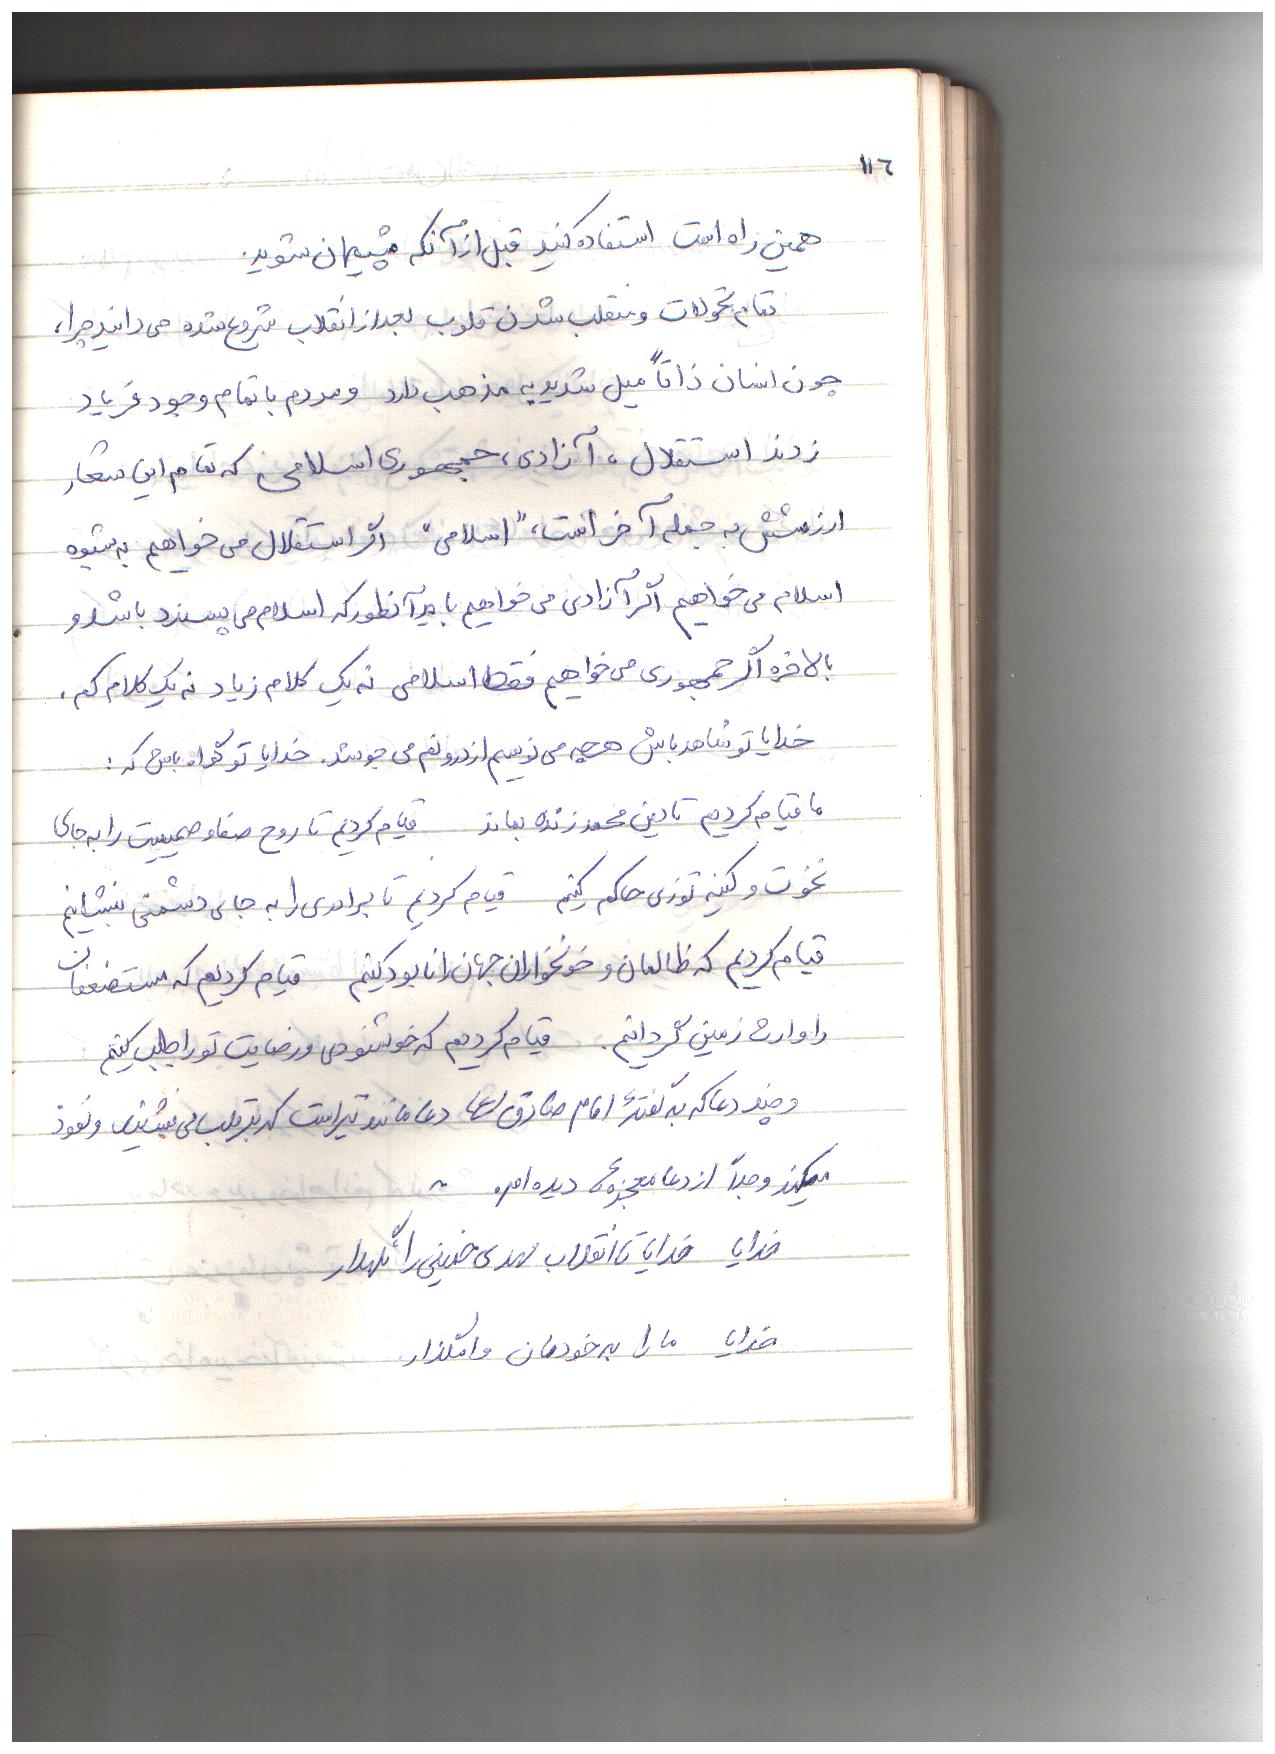 ۱۱۶
همین راه است استفاده کنید قبل از آنکه پشیمان شوید.
تمام تحولات و منقلب شدن قلوب بعد از انقلاب شروع شده می دانید چرا،
چون انسان ذاتاً میل شدید به مذهب دارد و مردم با تمام وجود فریاد
زدند استقلال، آزادی، جمهوری اسلامی که تمام این شعار
ارزشش به جمله آخر است، "اسلامی" اگر استقلال می خواهیم به شیوه
اسلام می خواهیم اگر آزادی می خواهیم باید آنطور که اسلام می پسندد باشد و
بالاخره اگر جمهوری می خواهیم فقط اسلامی نه یک کلام زیاد نه یک کلام کم.
خدایا تو شاهد باش هرچه می نویسم از درونم می جوشد. خدایا تو گواه باش که:
ما قیام کردیم تا دین محمد زنده بماند قیام کردیم تا روح صفا و صمیمیت را به جای
نخوت و کینه توزی حاکم کنیم قیام کردیم تا برادری را به جای دشمنی بنشانیم
قیام کردیم که ظالمان و خونخواران جهان را نابود کنیم قیام کردیم که مستضعفان
را وارث زمین گردانیم. قیام کردیم که خوشنودی و رضایت تو را طلب کنیم
و چند دعا که به گفتهٔ امام صادق (ع) دعا مانند تیر است که بر قلب می نشیند و نفوذ
میکند و جداً از دعا معجزه ها دیده ام.
خدایا خدایا تا انقلاب مهدی خمینی را نگهدار
خدایا ما را به خودمان وامگذار.